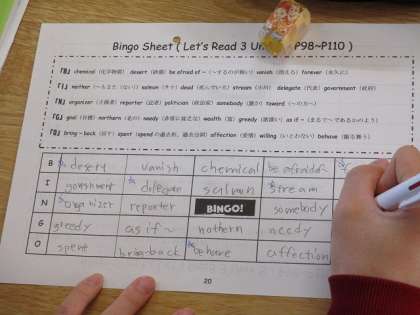 Bingo Sheet ( Let's Read 3 Un P98~P110 )
『B』 chemical (化学物質) desert (砂漠) be afraid of ~ (~するのが怖い) vanish (消える) forever (永久に)
『I』 mother salmon (サケ) dead (死んでいる) stream (小川) delegate (代表) government (政府)
『N』 organizer (主催者) reporter (記者) politician (政治家) somebody (誰か) toward (~の方へ)
『G』 goal (目標) northern (北の) needy wealth (富) greedy as if ~ (まるで~であるかのよう)
『O』 bring - back (戻す) spent (spend の過去形、過去分詞) affection (愛情) willing (いとわない) behave (振る舞う)
B desery vanish chemical be afraidof
I government delegate salmon stream
N organizer reporter BINGO! somebody
G greedy as if ~ nothern needy
O spent bring-back behave affection
20